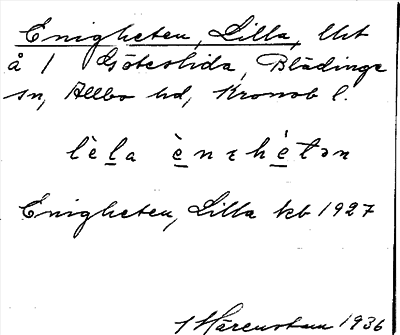 Enigheten, Lilla, lht
å 1 Göteslida, Blädinge
sn, Allbo hd, Kronob l.
lèla ènɛhètən
Enigheten, Lilla kb 1927
1936